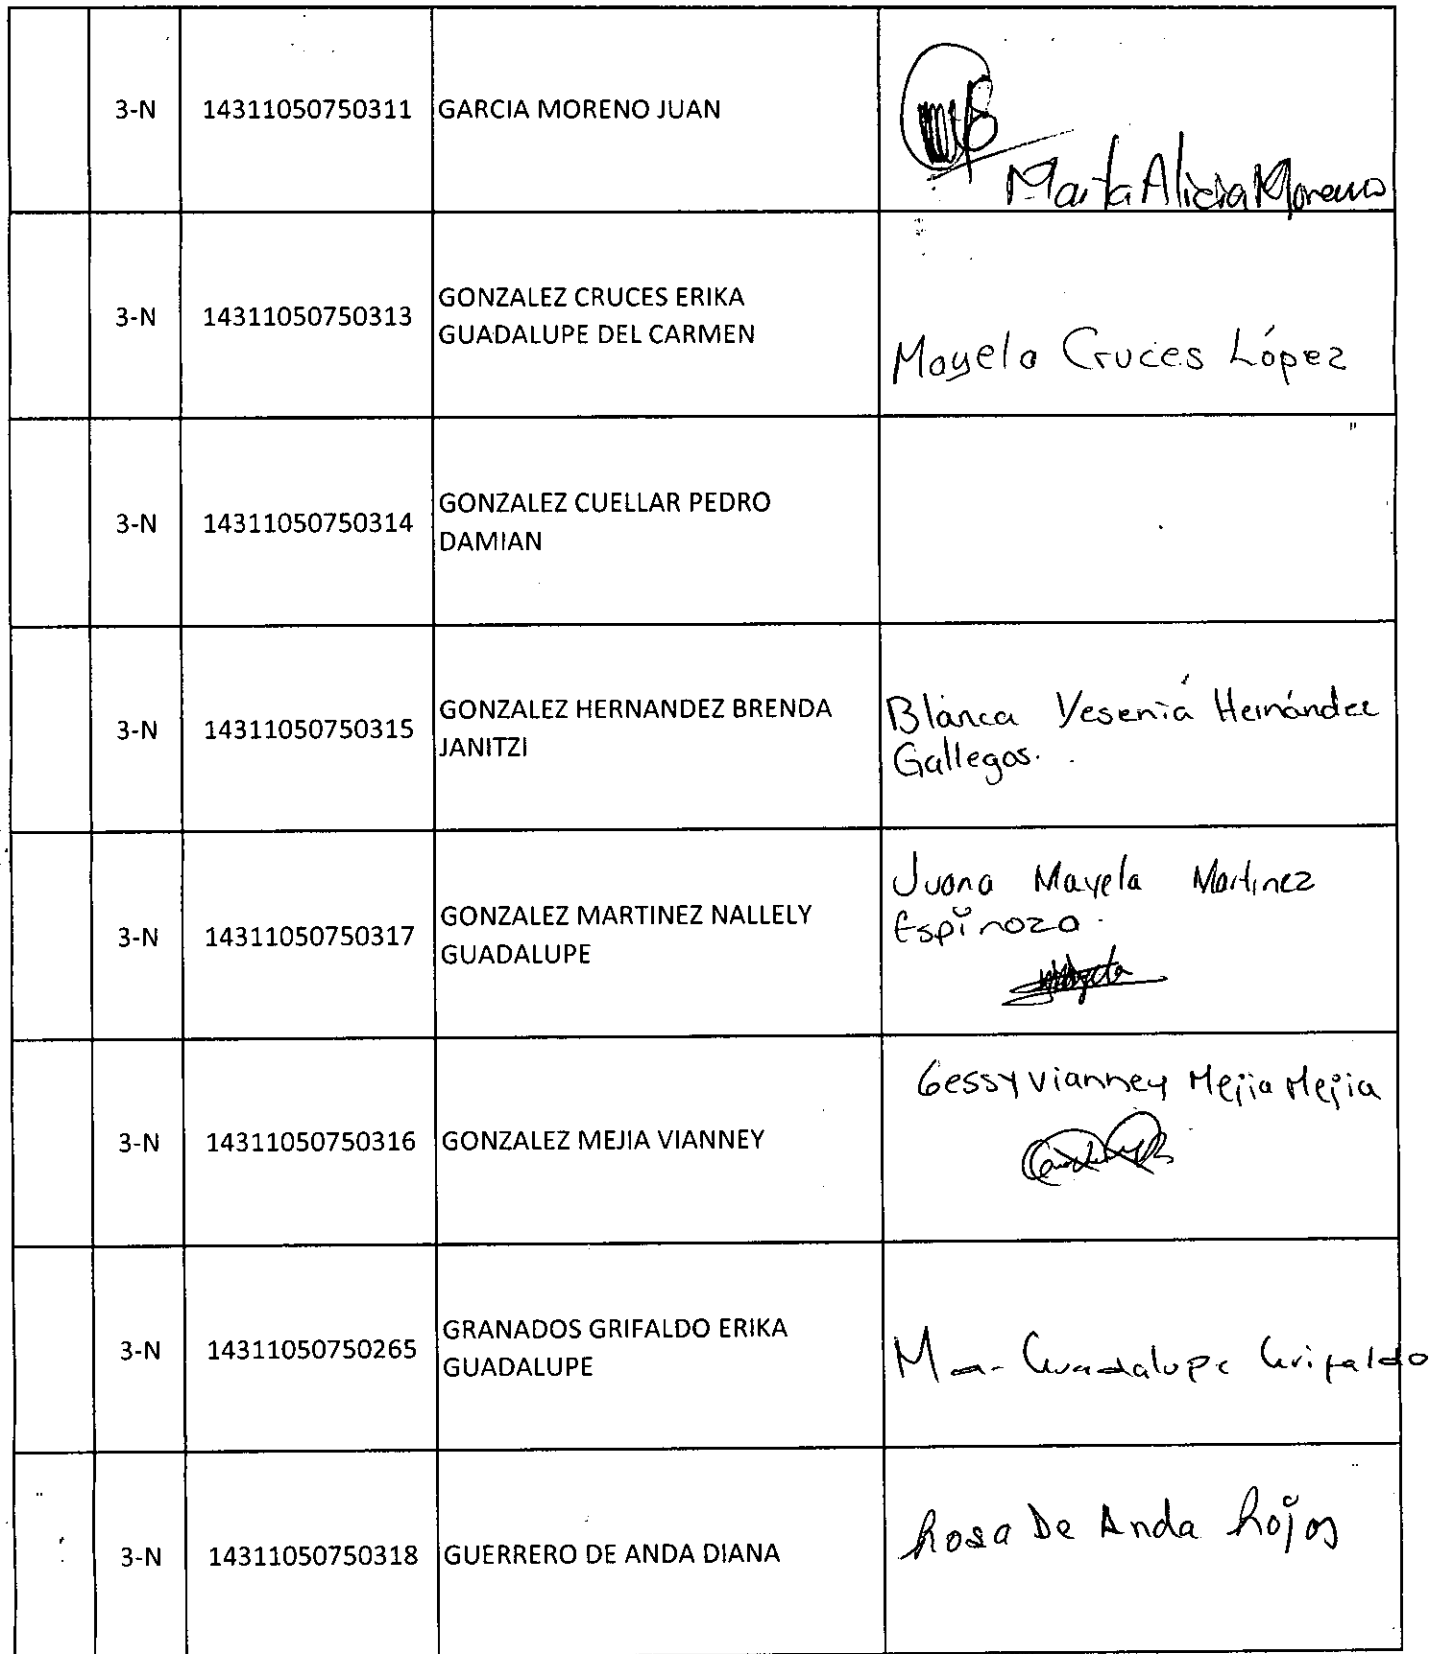 3-N 14311050750311 GARCIA MORENO JUAN
Marta Alicia Moreno
3-N 14311050750313 GONZALEZ CRUCES ERIKA
GUADALUPE DEL CARMEN
Mayela Cruces López
3-N 14311050750314 GONZALEZ CUELLAR PEDRO
DAMIAN
3-N 14311050750315 GONZALEZ HERNANDEZ BRENDA
JANITZI
Blanca Yesenia Hernández
Gallegos.
3-N 14311050750317 GONZALEZ MARTINEZ NALLELY
GUADALUPE
Juana Mayela Martinez
Espinoza.
3-N 14311050750316 GONZALEZ MEJIA VIANNEY
Gessy Vianney Mejia Mejia
3-N 14311050750265 GRANADOS GRIFALDO ERIKA
GUADALUPE
Ma- Guadalupe Grifaldo
3-N 14311050750318 GUERRERO DE ANDA DIANA
Rosa De Anda Rojas